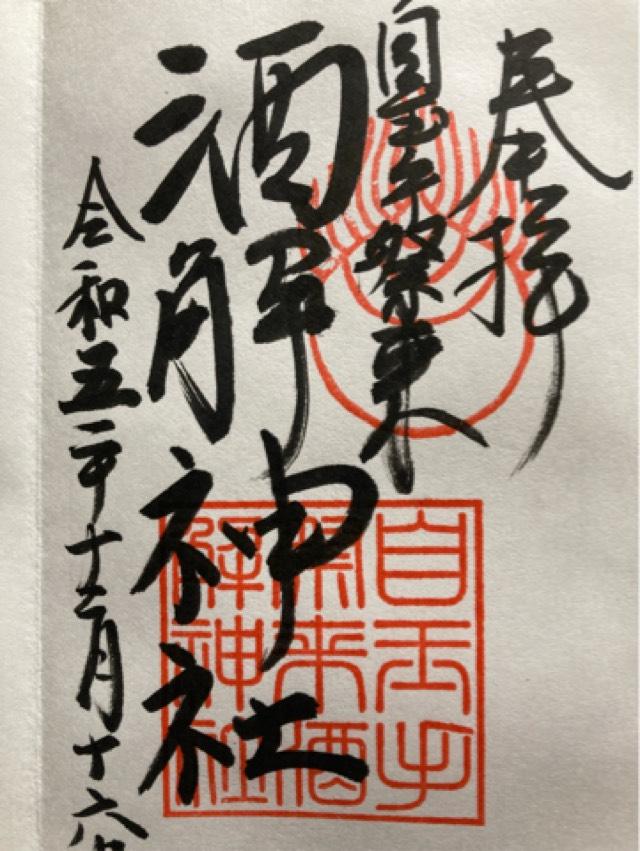 奉拝
自玉手祭来
酒解神社
令和五年十二月十六日
自玉手
祭来酒
解神社